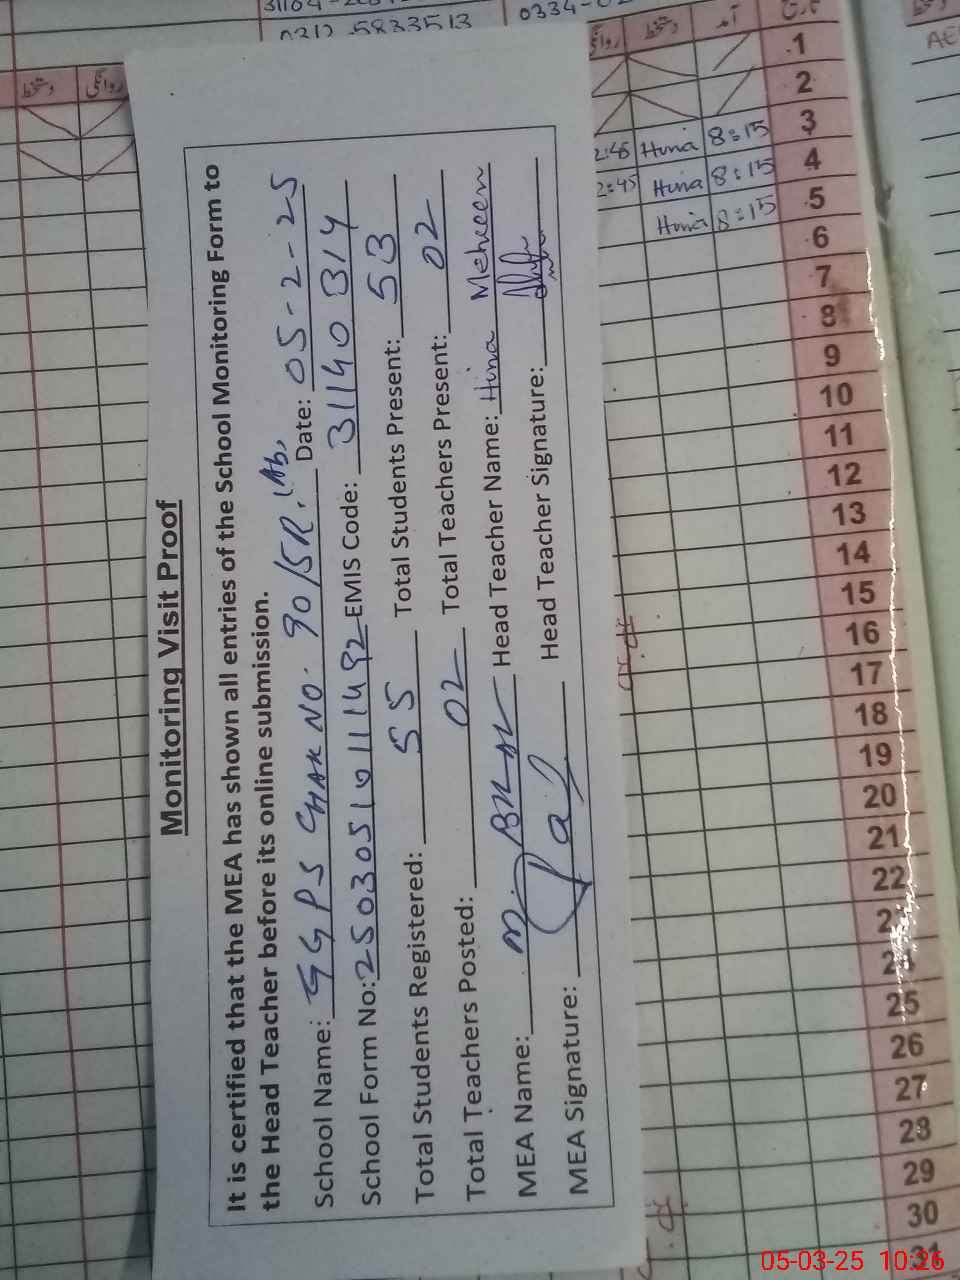 Monitoring Visit Proof
It is certified that the MEA has shown all entries of the School Monitoring Form to
the Head Teacher before its online submission.
School Name: GGPS CHAK NO. 90/5R. Date: 05-2-25
School Form No: 2503051011492 EMIS Code: 31140314
Total Students Registered: 55 Total Students Present: 53
Total Teachers Posted: 02 Total Teachers Present: 02
MEA Name: Head Teacher Name: Hina Meheeen
MEA Signature: Head Teacher Signature:
0312 5833513
0334-0
دستخط روانگی
روانگی دستخط آمد تاریخ
1
2
2:45 Hina 8:15 3
2:45 Hina 8:15 4
Hina 8:15 5
6
7
8
9
10
11
12
13
14
15
16
17
18
19
20
21
22
23
24
25
26
27
28
29
30
31
05-03-25 10:26